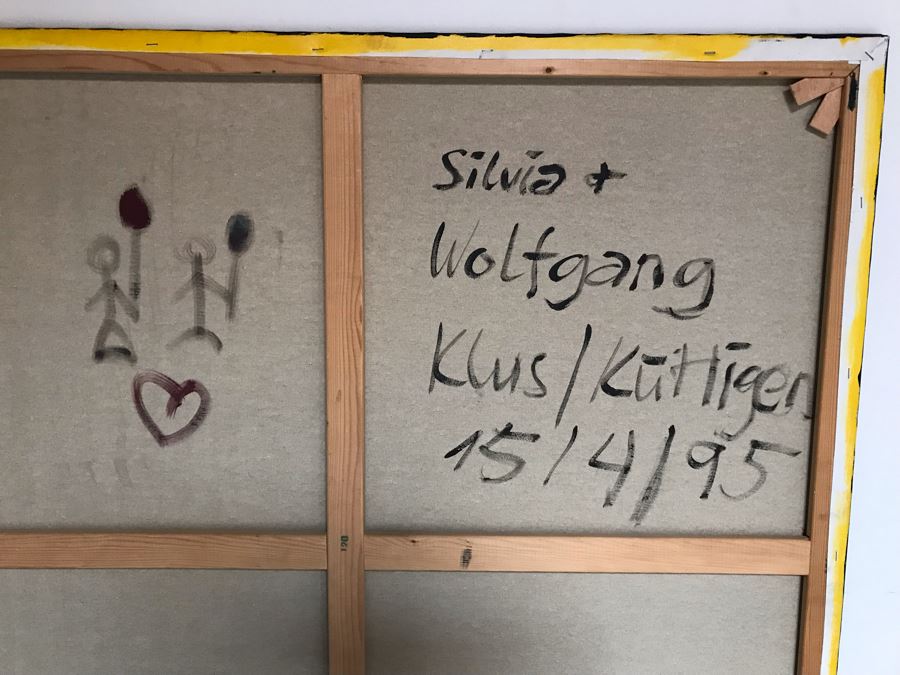 Silvia +
Wolfgang
Klus / Küttigen
15/4/95